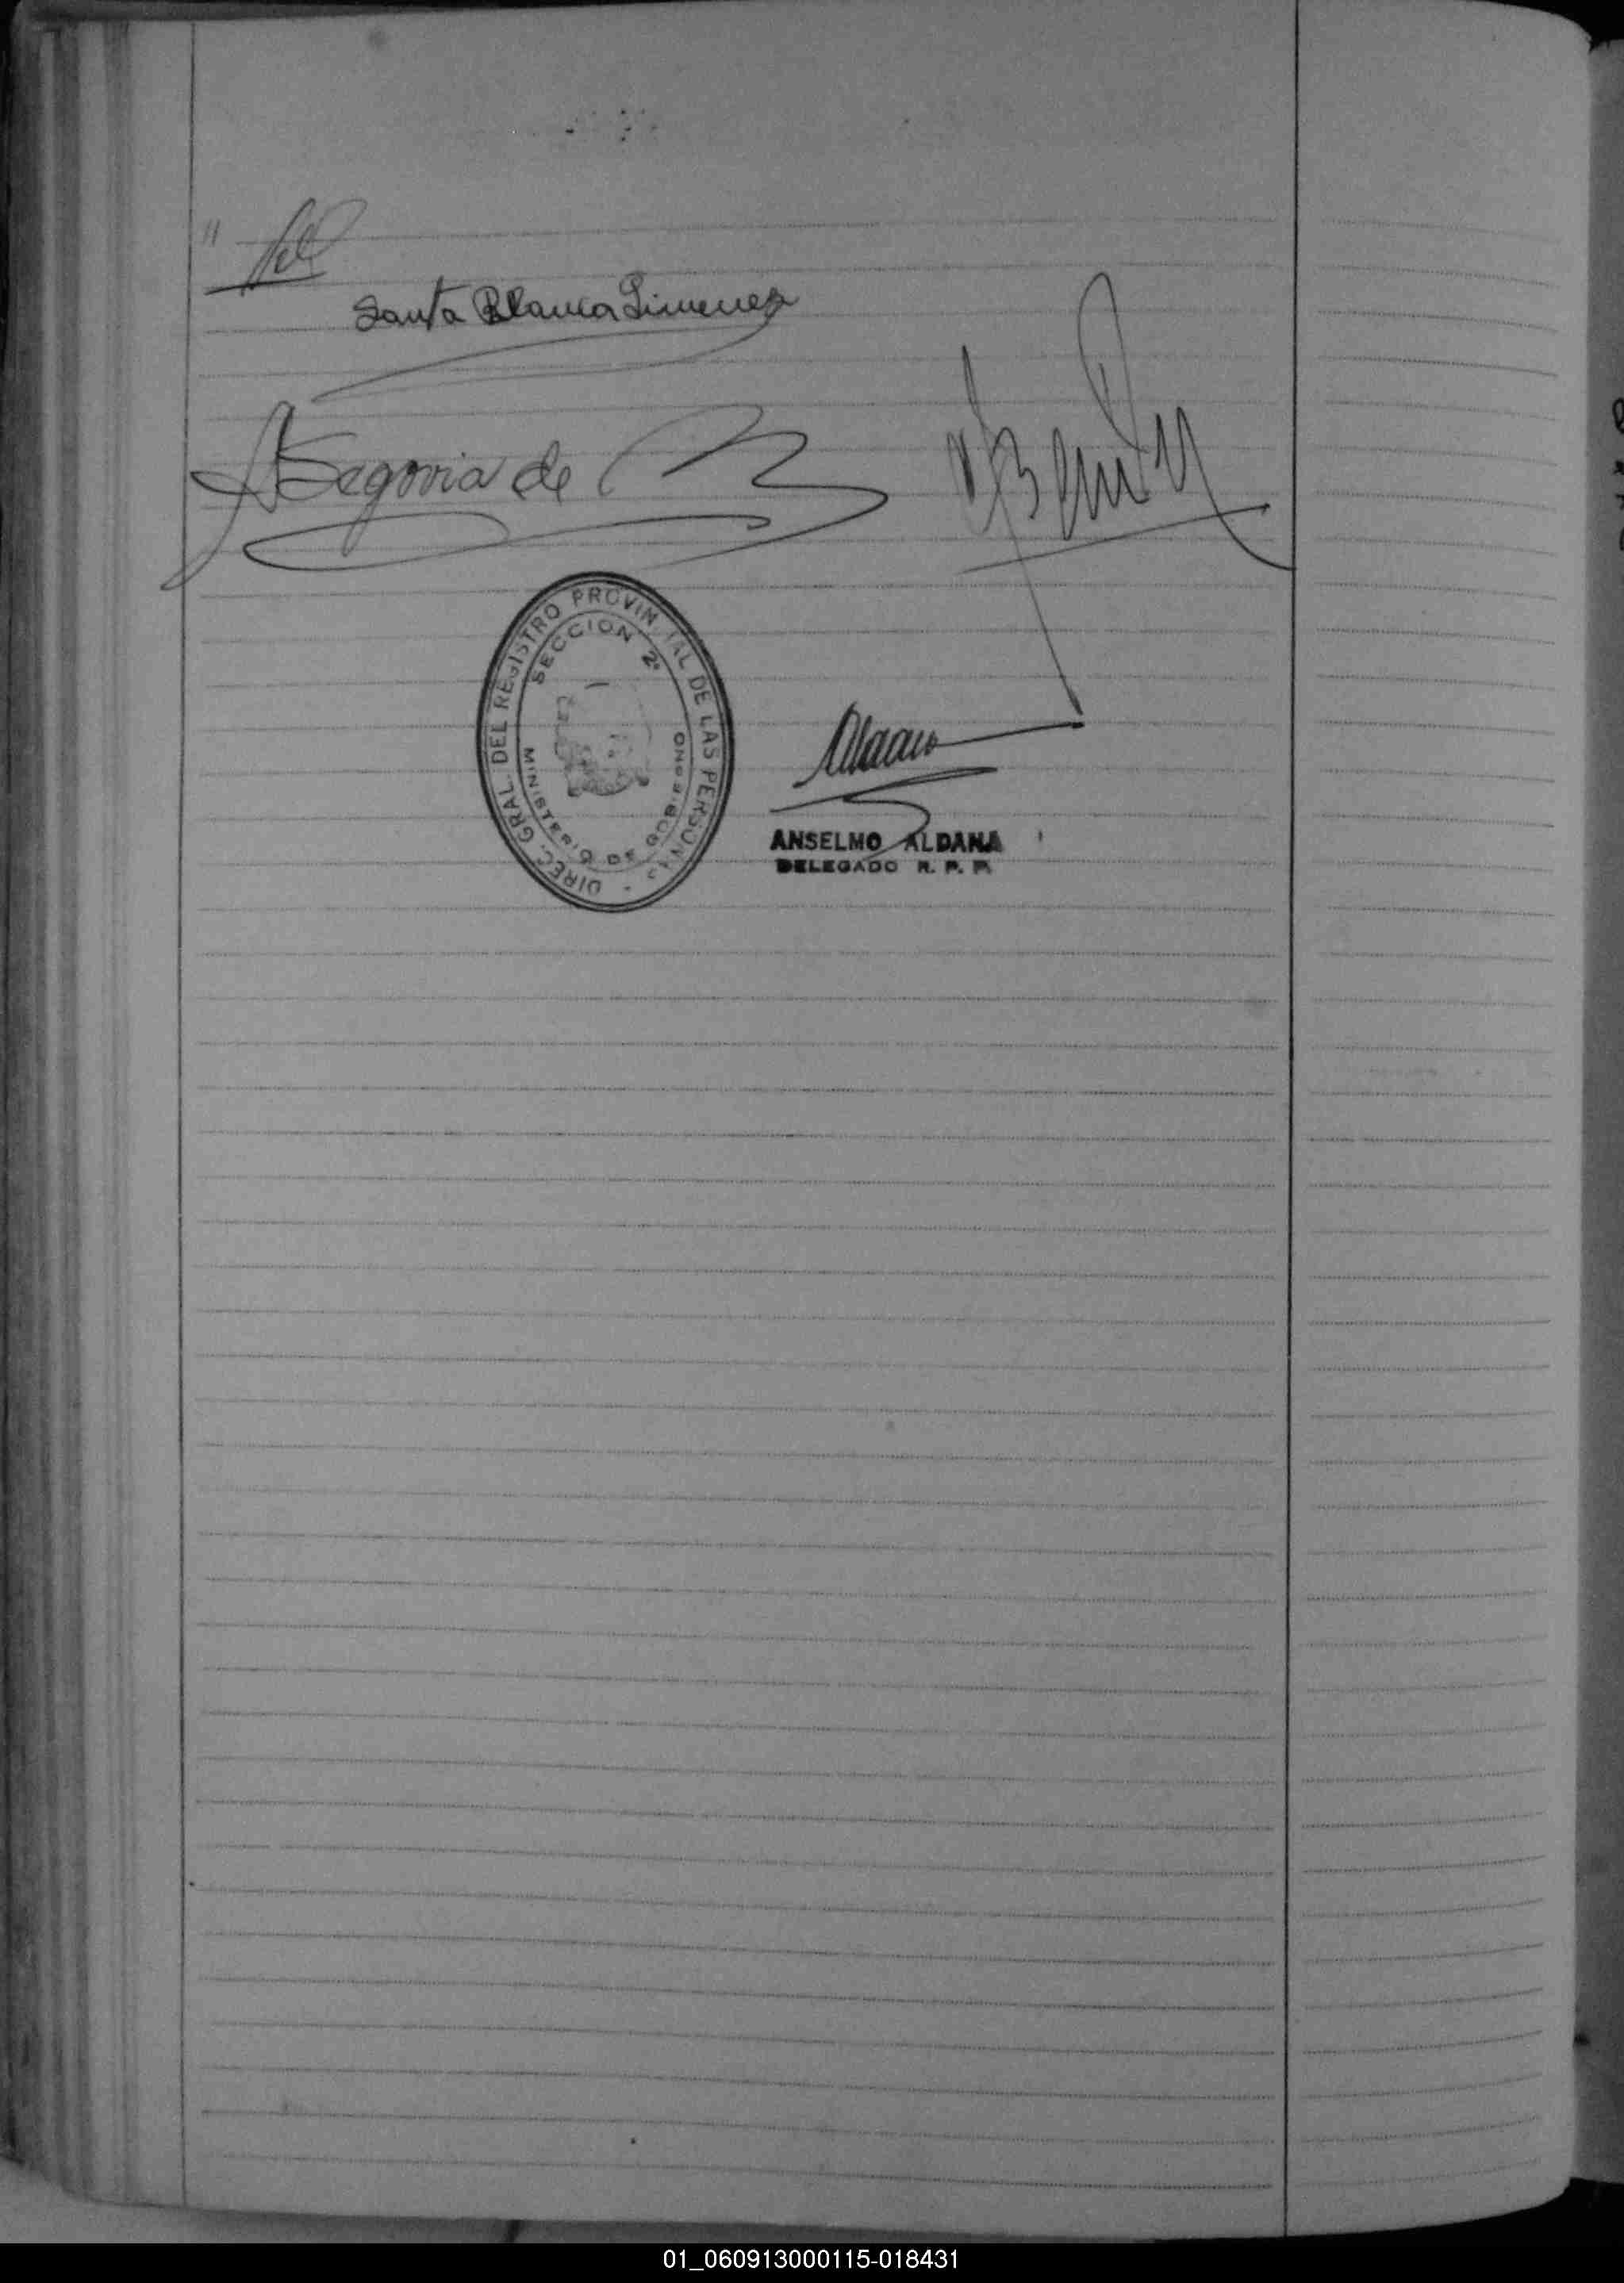 "
Santa Blanca Gimenez
Segovia de
DIREC. GRAL. DEL REGISTRO PROVINCIAL DE LAS PERSONAS
SECCION 2ª
MINISTERIO DE GOBIERNO
ANSELMO ALDANA
DELEGADO R. P. P.
01_060913000115-018431